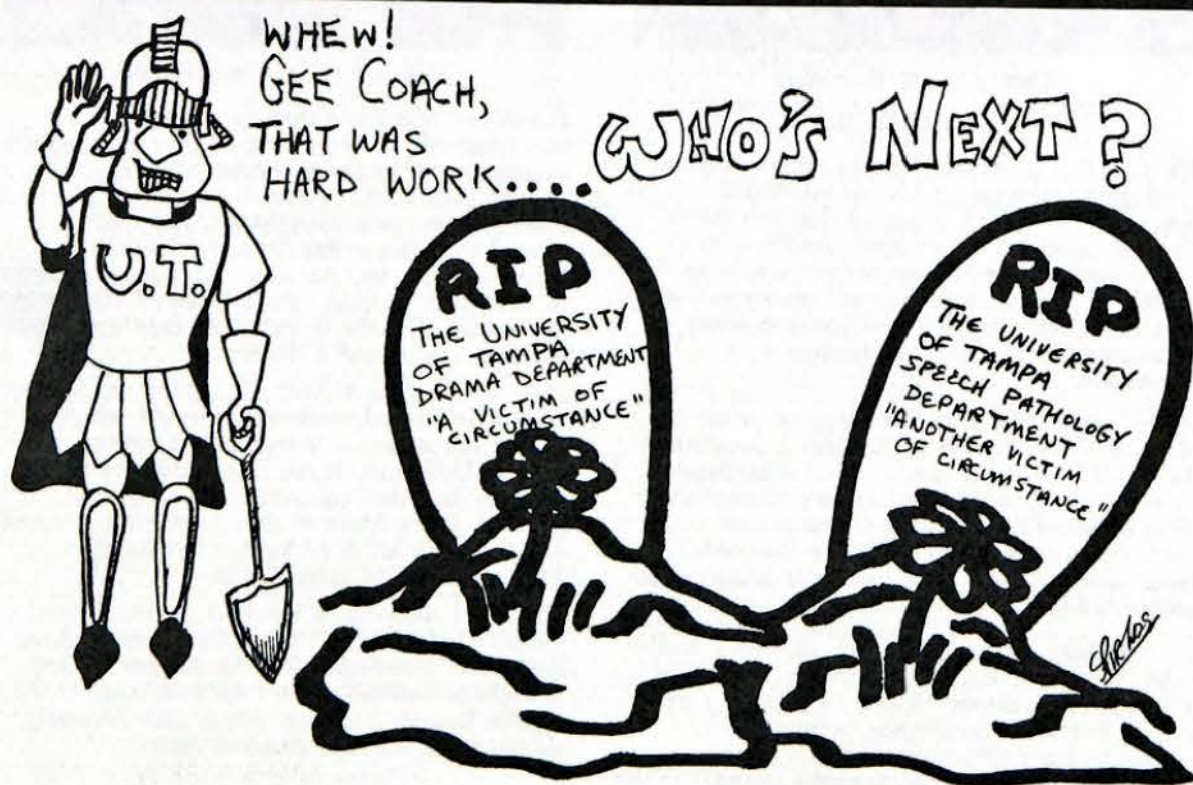 WHEW!
GEE COACH,
THAT WAS
HARD WORK....
WHO'S NEXT?
U.T.
RIP
THE UNIVERSITY
OF TAMPA
DRAMA DEPARTMENT
"A VICTIM OF
CIRCUMSTANCE"
RIP
THE UNIVERSITY
OF TAMPA
SPEECH PATHOLOGY
DEPARTMENT
"ANOTHER VICTIM
OF CIRCUMSTANCE"